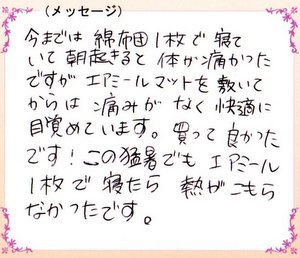 (メッセージ)
今までは 綿布団1枚で寝て
いて朝起きると 体が痛かった
ですが エアミールマットを敷いて
からは 痛みがなく快適に
目覚めています。買って良かった
です!この猛暑でも エアミール
1枚で寝たら 熱がこもら
なかったです。